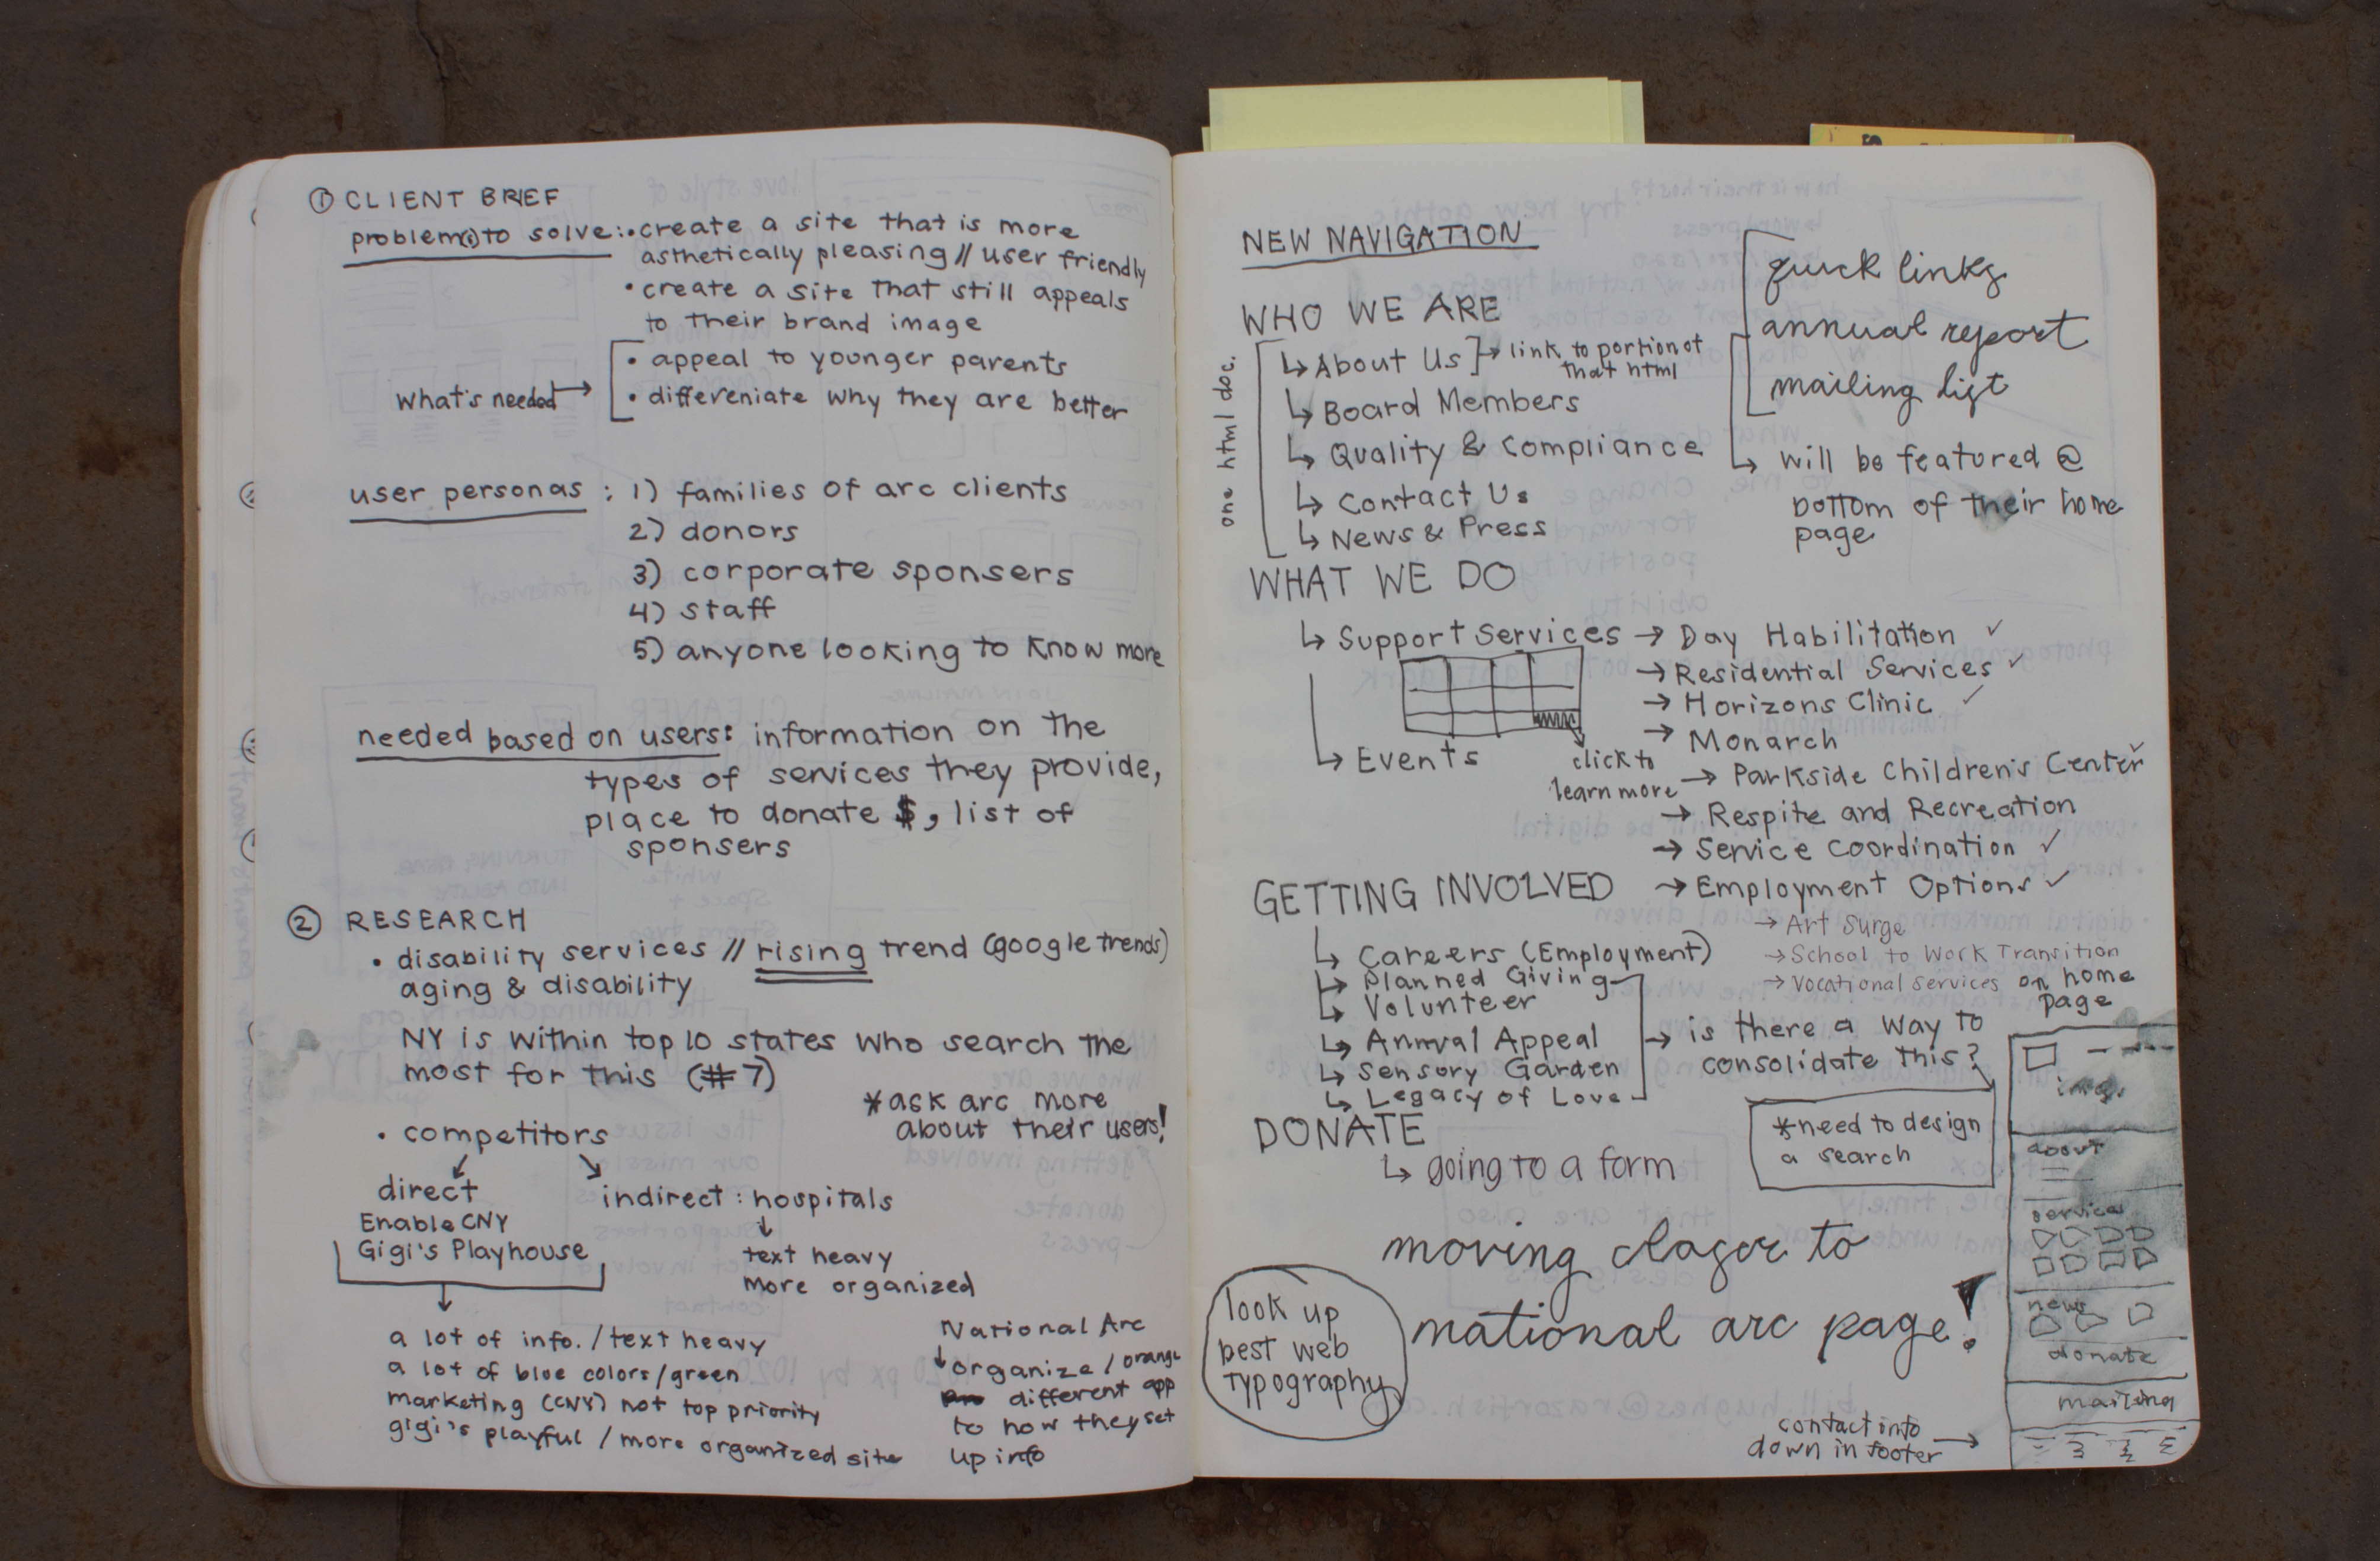 ① CLIENT BRIEF
problem(s) to solve: • create a site that is more
asthetically pleasing // user friendly
• create a site that still appeals
to their brand image
• appeal to younger parents
what's needed → • differeniate why they are better
user personas : 1) families of arc clients
2) donors
3) corporate sponsers
4) staff
5) anyone looking to know more
needed based on users: information on the
types of services they provide,
place to donate $, list of
sponsers
② RESEARCH
• disability services // rising trend (google trends)
aging & disability
NY is within top 10 states who search the
most for this (#7)
*ask arc more
about their users!
• competitors
direct
Enable CNY
Gigi's Playhouse
indirect : hospitals
text heavy
more organized
a lot of info. / text heavy
a lot of blue colors/green
marketing (CNY) not top priority
gigi's playful / more organized site
National Arc
organize / orange
different app
to how they set
up info
NEW NAVIGATION
WHO WE ARE
one html doc.
↳ About Us → link to portion of
that html
↳ Board Members
↳ Quality & Compliance
↳ Contact Us
↳ News & Press
quick links
annual report
mailing list
↳ will be featured @
bottom of their home
page
WHAT WE DO
↳ Support Services → Day Habilitation ✓
→ Residential Services ✓
→ Horizons Clinic ✓
→ Monarch
↳ Events
click to
learn more
→ Parkside Children's Center ✓
→ Respite and Recreation
→ Service Coordination ✓
→ Employment Options ✓
→ Art Surge
→ School to Work Transition
→ Vocational Services
GETTING INVOLVED
↳ Careers (Employment)
↳ Planned Giving
↳ Volunteer
↳ Annual Appeal
↳ Sensory Garden
↳ Legacy of Love
→ is there a way to
consolidate this?
*need to design
a search
DONATE
↳ going to a form
moving closer to
national arc page!
look up
best web
typography
on home
page
image
about
services
news
donate
mailing
contact info
down in footer →